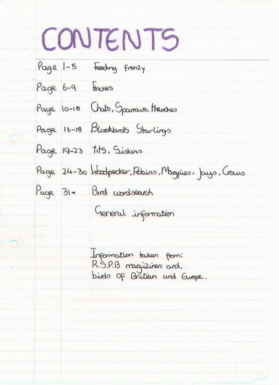 CONTENTS
Page 1-5 Feeding frenzy
Page 6-9 Finches
Page 10-15 Chats, Sparrows, thrushes
Page 16-18 Blackbirds Starlings
Page 19-23 Tits, Siskins
Page 24-30 Woodpecker, Robins, Magpies, Jays, Crows
Page 31- Bird wordsearch
General information
Information taken from:
R.S.P.B magazines and
birds of Britian and Europe.